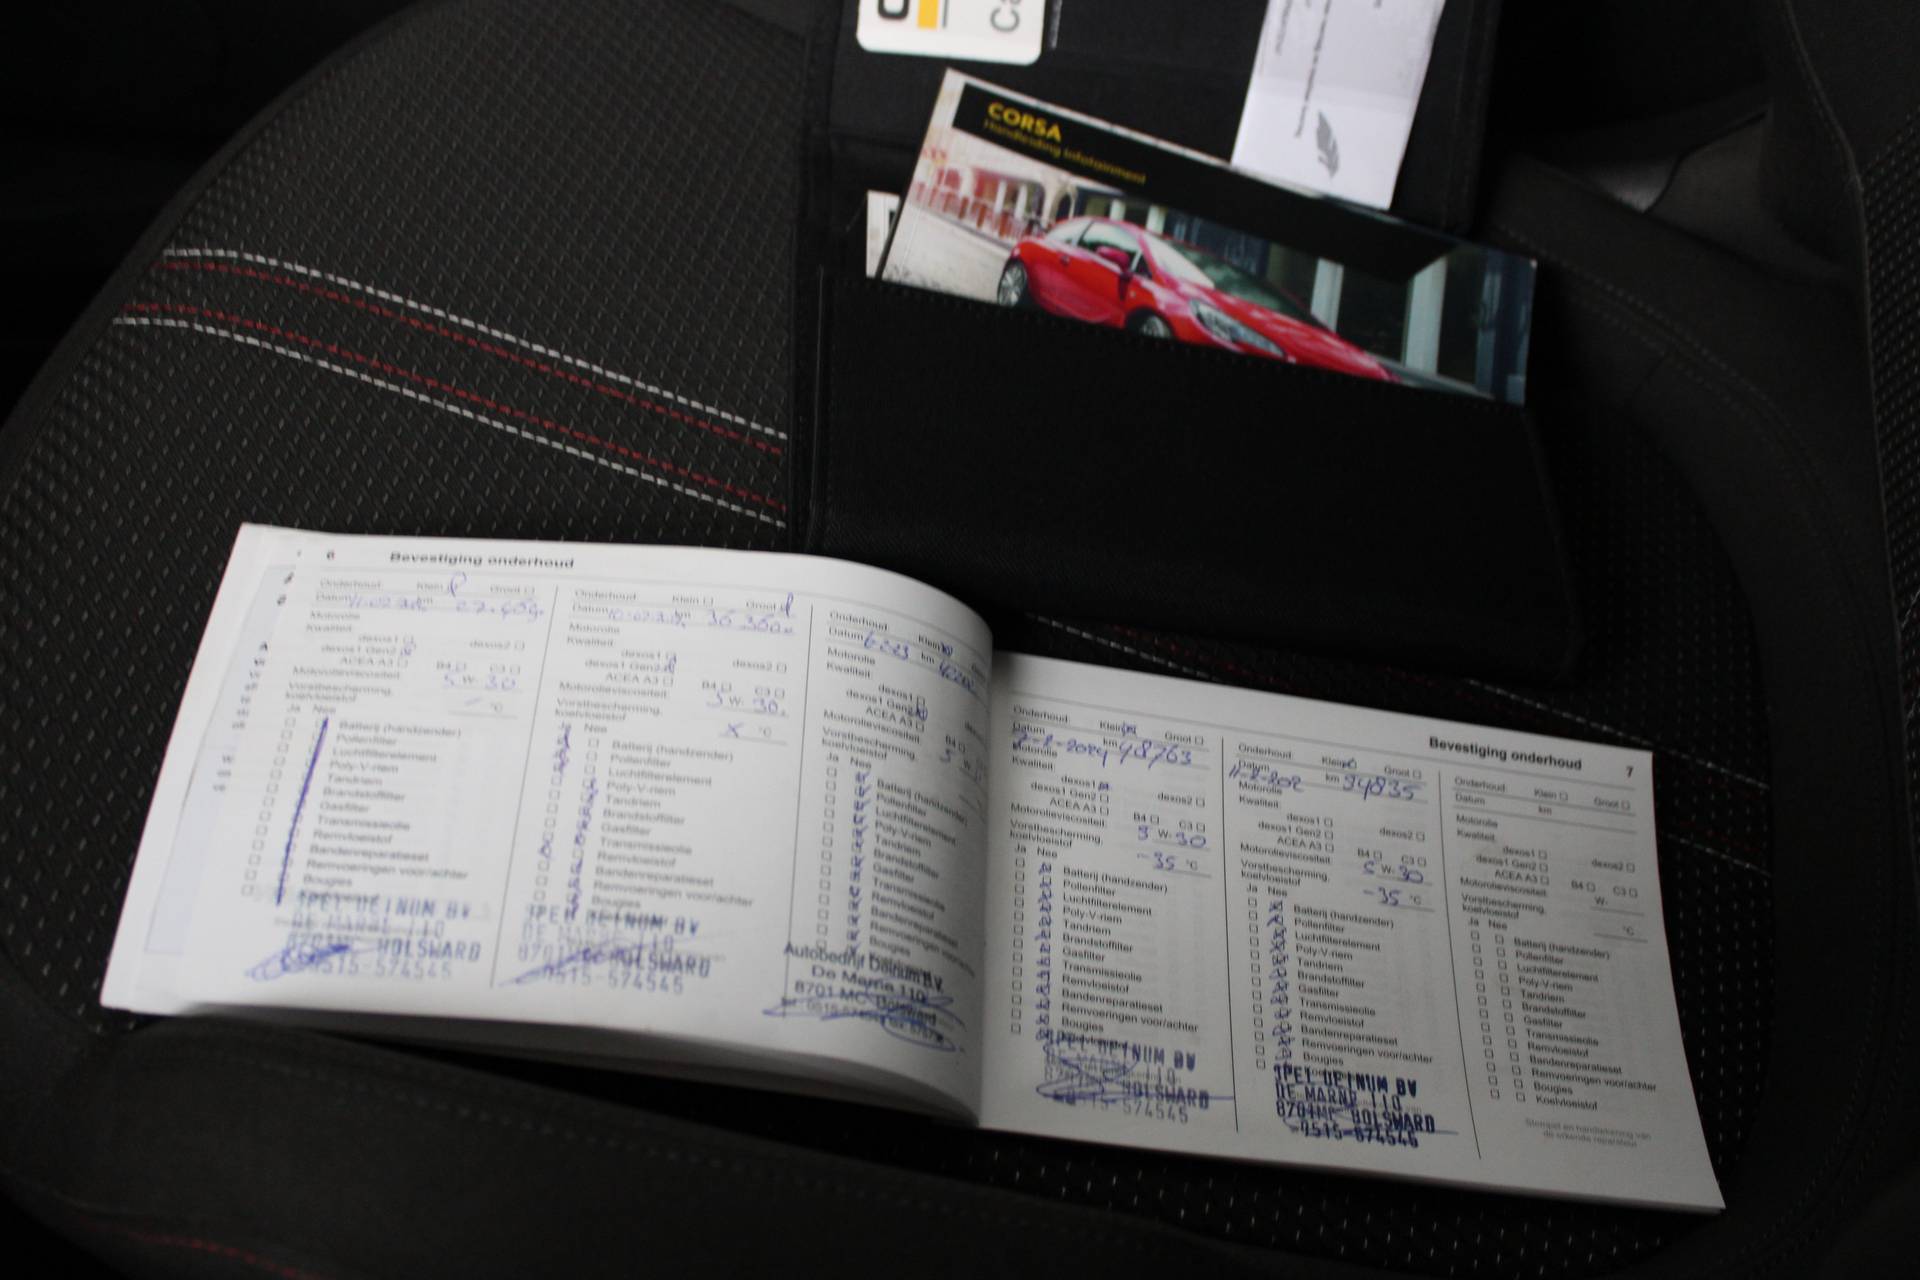 Ca
CORSA
Handleiding Infotainment
6 Bevestiging onderhoud
Onderhoud: Klein Groot
Datum km
Motorolie
Kwaliteit:
dexos1 dexos2
dexos1 Gen2
ACEA A3 B4 C3
Motorolieviscositeit: 5 W- 30
Vorstbescherming,
koelvloeistof °C
Ja Nee
Batterij (handzender)
Pollenfilter
Luchtfilterelement
Poly-V-riem
Tandriem
Brandstoffilter
Gasfilter
Transmissieolie
Remvloeistof
Bandenreparatieset
Remvoeringen voor/achter
Bougies
OPEL DEINUM BV
DE MARNE 110
8701MC BOLSWARD
0515-574545
Onderhoud: Klein Groot
Datum km
Motorolie
Kwaliteit:
dexos1 dexos2
dexos1 Gen2
ACEA A3 B4 C3
Motorolieviscositeit: 5 W- 30
Vorstbescherming,
koelvloeistof X °C
Ja Nee
Batterij (handzender)
Pollenfilter
Luchtfilterelement
Poly-V-riem
Tandriem
Brandstoffilter
Gasfilter
Transmissieolie
Remvloeistof
Bandenreparatieset
Remvoeringen voor/achter
Bougies
OPEL DEINUM BV
8701MC BOLSWARD
0515-574545
Onderhoud: Klein
Datum 6-2-23 km
Motorolie
Kwaliteit:
dexos1
dexos1 Gen2
ACEA A3 B4
Motorolieviscositeit: 5 W-
Vorstbescherming,
koelvloeistof
Ja Nee
Batterij (handzender)
Pollenfilter
Luchtfilterelement
Poly-V-riem
Tandriem
Brandstoffilter
Gasfilter
Transmissieolie
Remvloeistof
Bandenreparatieset
Remvoeringen voor/achter
Bougies
Autobedrijf Deinum B.V.
De Marne 110
8701 MC Bolsward
Bevestiging onderhoud 7
Onderhoud: Klein Groot
Datum km 48763
Motorolie
Kwaliteit:
dexos1 dexos2
dexos1 Gen2
ACEA A3 B4 C3
Motorolieviscositeit: 5 W- 30
Vorstbescherming,
koelvloeistof -35 °C
Ja Nee
Batterij (handzender)
Pollenfilter
Luchtfilterelement
Poly-V-riem
Tandriem
Brandstoffilter
Gasfilter
Transmissieolie
Remvloeistof
Bandenreparatieset
Remvoeringen voor/achter
Bougies
OPEL DEINUM BV
8701MC BOLSWARD
0515-574545
Onderhoud: Klein Groot
Datum 11-2-202 km
Motorolie
Kwaliteit:
dexos1 dexos2
dexos1 Gen2
ACEA A3 B4 C3
Motorolieviscositeit: 5 W- 30
Vorstbescherming,
koelvloeistof -35 °C
Ja Nee
Batterij (handzender)
Pollenfilter
Luchtfilterelement
Poly-V-riem
Tandriem
Brandstoffilter
Gasfilter
Transmissieolie
Remvloeistof
Bandenreparatieset
Remvoeringen voor/achter
Bougies
OPEL DEINUM BV
DE MARNE 110
8701MC BOLSWARD
0515-574545
Onderhoud: Klein Groot
Datum km
Motorolie
Kwaliteit:
dexos1 dexos2
dexos1 Gen2
ACEA A3 B4 C3
Motorolieviscositeit: W-
Vorstbescherming,
koelvloeistof °C
Ja Nee
Batterij (handzender)
Pollenfilter
Luchtfilterelement
Poly-V-riem
Tandriem
Brandstoffilter
Gasfilter
Transmissieolie
Remvloeistof
Bandenreparatieset
Remvoeringen voor/achter
Bougies
Koelvloeistof
Stempel en handtekening van
de erkende reparateur